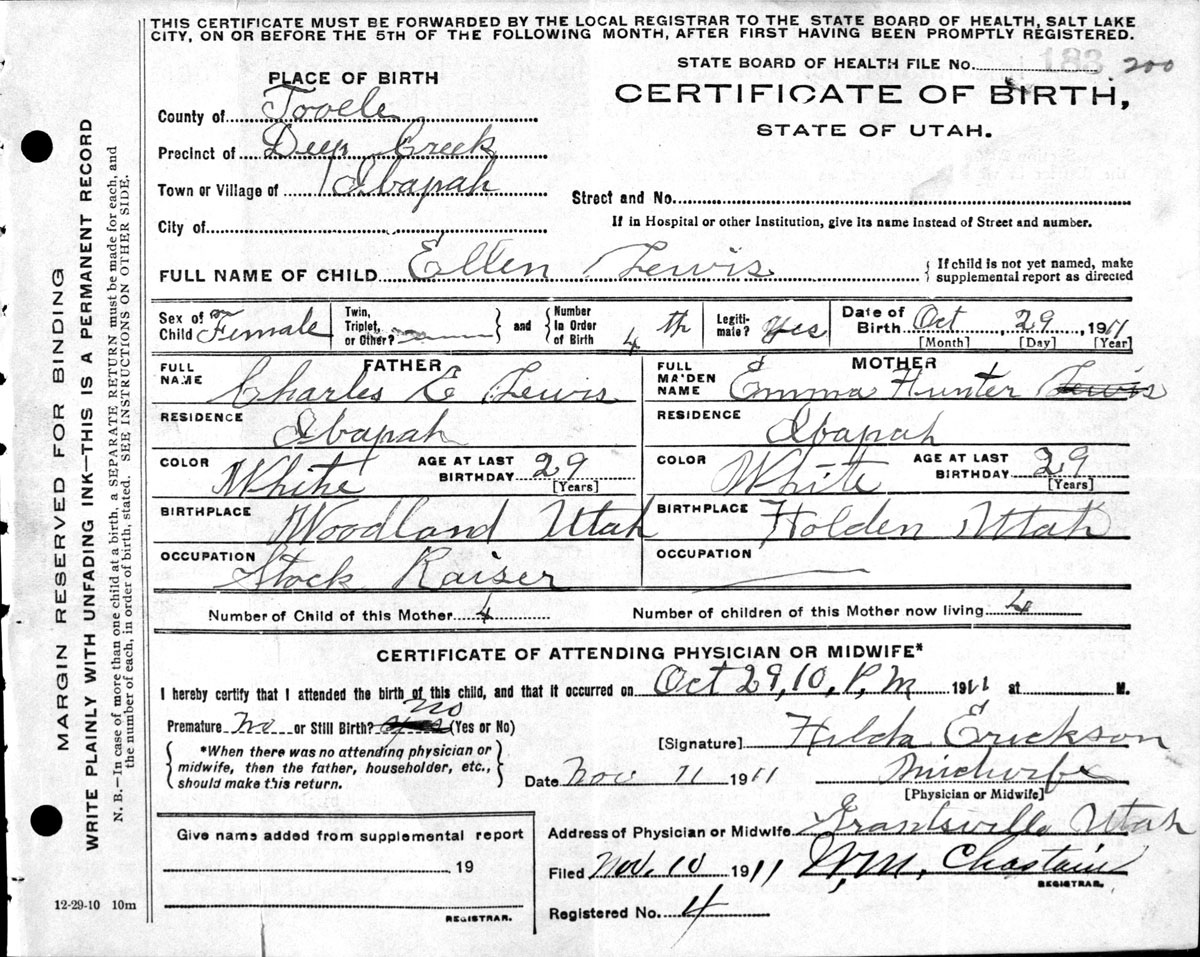 THIS CERTIFICATE MUST BE FORWARDED BY THE LOCAL REGISTRAR TO THE STATE BOARD OF HEALTH, SALT LAKE
CITY, ON OR BEFORE THE 5TH OF THE FOLLOWING MONTH, AFTER FIRST HAVING BEEN PROMPTLY REGISTERED.
STATE BOARD OF HEALTH FILE No. 183 200
PLACE OF BIRTH
CERTIFICATE OF BIRTH,
STATE OF UTAH.
County of Tooele
Precinct of Deep Creek
Town or Village of Ibapah
Street and No.
City of
If in Hospital or other Institution, give its name instead of Street and number.
FULL NAME OF CHILD Ellen Lewis
{ If child is not yet named, make
supplemental report as directed
Sex of Child Female
Twin, Triplet, or Other? } and { Number In Order of Birth 4th
Legiti-mate? Yes
Date of Birth Oct, 29, 1911
[Month] [Day] [Year]
FATHER
MOTHER
FULL NAME Charles E Lewis
FULL MAIDEN NAME Emma Hunter Lewis
RESIDENCE Ibapah
RESIDENCE Ibapah
COLOR White AGE AT LAST BIRTHDAY 29 [Years]
COLOR White AGE AT LAST BIRTHDAY 29 [Years]
BIRTHPLACE Woodland Utah
BIRTHPLACE Holden Utah
OCCUPATION Stock Raiser
OCCUPATION
Number of Child of this Mother 4
Number of children of this Mother now living 4
CERTIFICATE OF ATTENDING PHYSICIAN OR MIDWIFE*
I hereby certify that I attended the birth of this child, and that it occurred on Oct 29, 10, P, M 1911 at M.
Premature No or Still Birth? no (Yes or No)
{ *When there was no attending physician or
midwife, then the father, householder, etc.,
should make this return. }
[Signature] Hilda Erickson
Date Nov 11 1911 Midwife
[Physician or Midwife]
Give name added from supplemental report
19
REGISTRAR.
Address of Physician or Midwife Grantsville Utah
Filed Nov. 10 1911 Wm. Chastain
REGISTRAR.
Registered No. 4
12-29-10 10m
MARGIN RESERVED FOR BINDING
WRITE PLAINLY WITH UNFADING INK—THIS IS A PERMANENT RECORD
N. B.—In case of more than one child at a birth, a SEPARATE RETURN must be made for each, and
the number of each, in order of birth, stated. SEE INSTRUCTIONS ON OTHER SIDE.